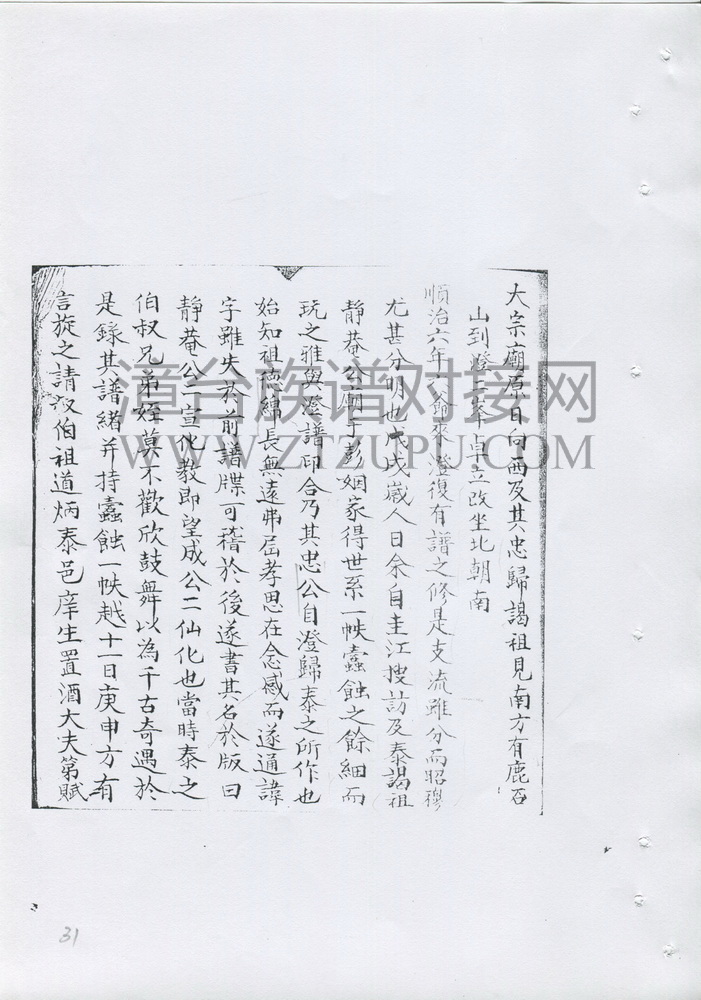 大宗廟原日向西及其忠歸謁祖見南方有鹿石
山到燈二峯卓立改坐北朝南
順治六年 爺來澄復有譜之修是支流雖分而昭穆
尤甚分明也戊戌歲人日余自圭江搜訪及泰謁祖
靜菴公廟于彭姻家得世系一帙蠹蝕之餘細而
玩之雅與澄譜印合乃其忠公自澄歸泰之所作也
始知祖德綿長無遠弗屆孝思在念感而遂通諱
字雖失於前譜牒可稽於後遂書其名於版曰
靜菴公二宣化教即望成公二仙化也當時泰之
伯叔兄弟姪莫不歡欣鼓舞以為千古奇遇於
是錄其譜緒并持蠹蝕一帙越十一日庚申方有
言旋之請叔伯祖道炳泰邑庠生置酒大夫第賦
漳台族谱对接网
WWW.ZTZUPU.COM
31